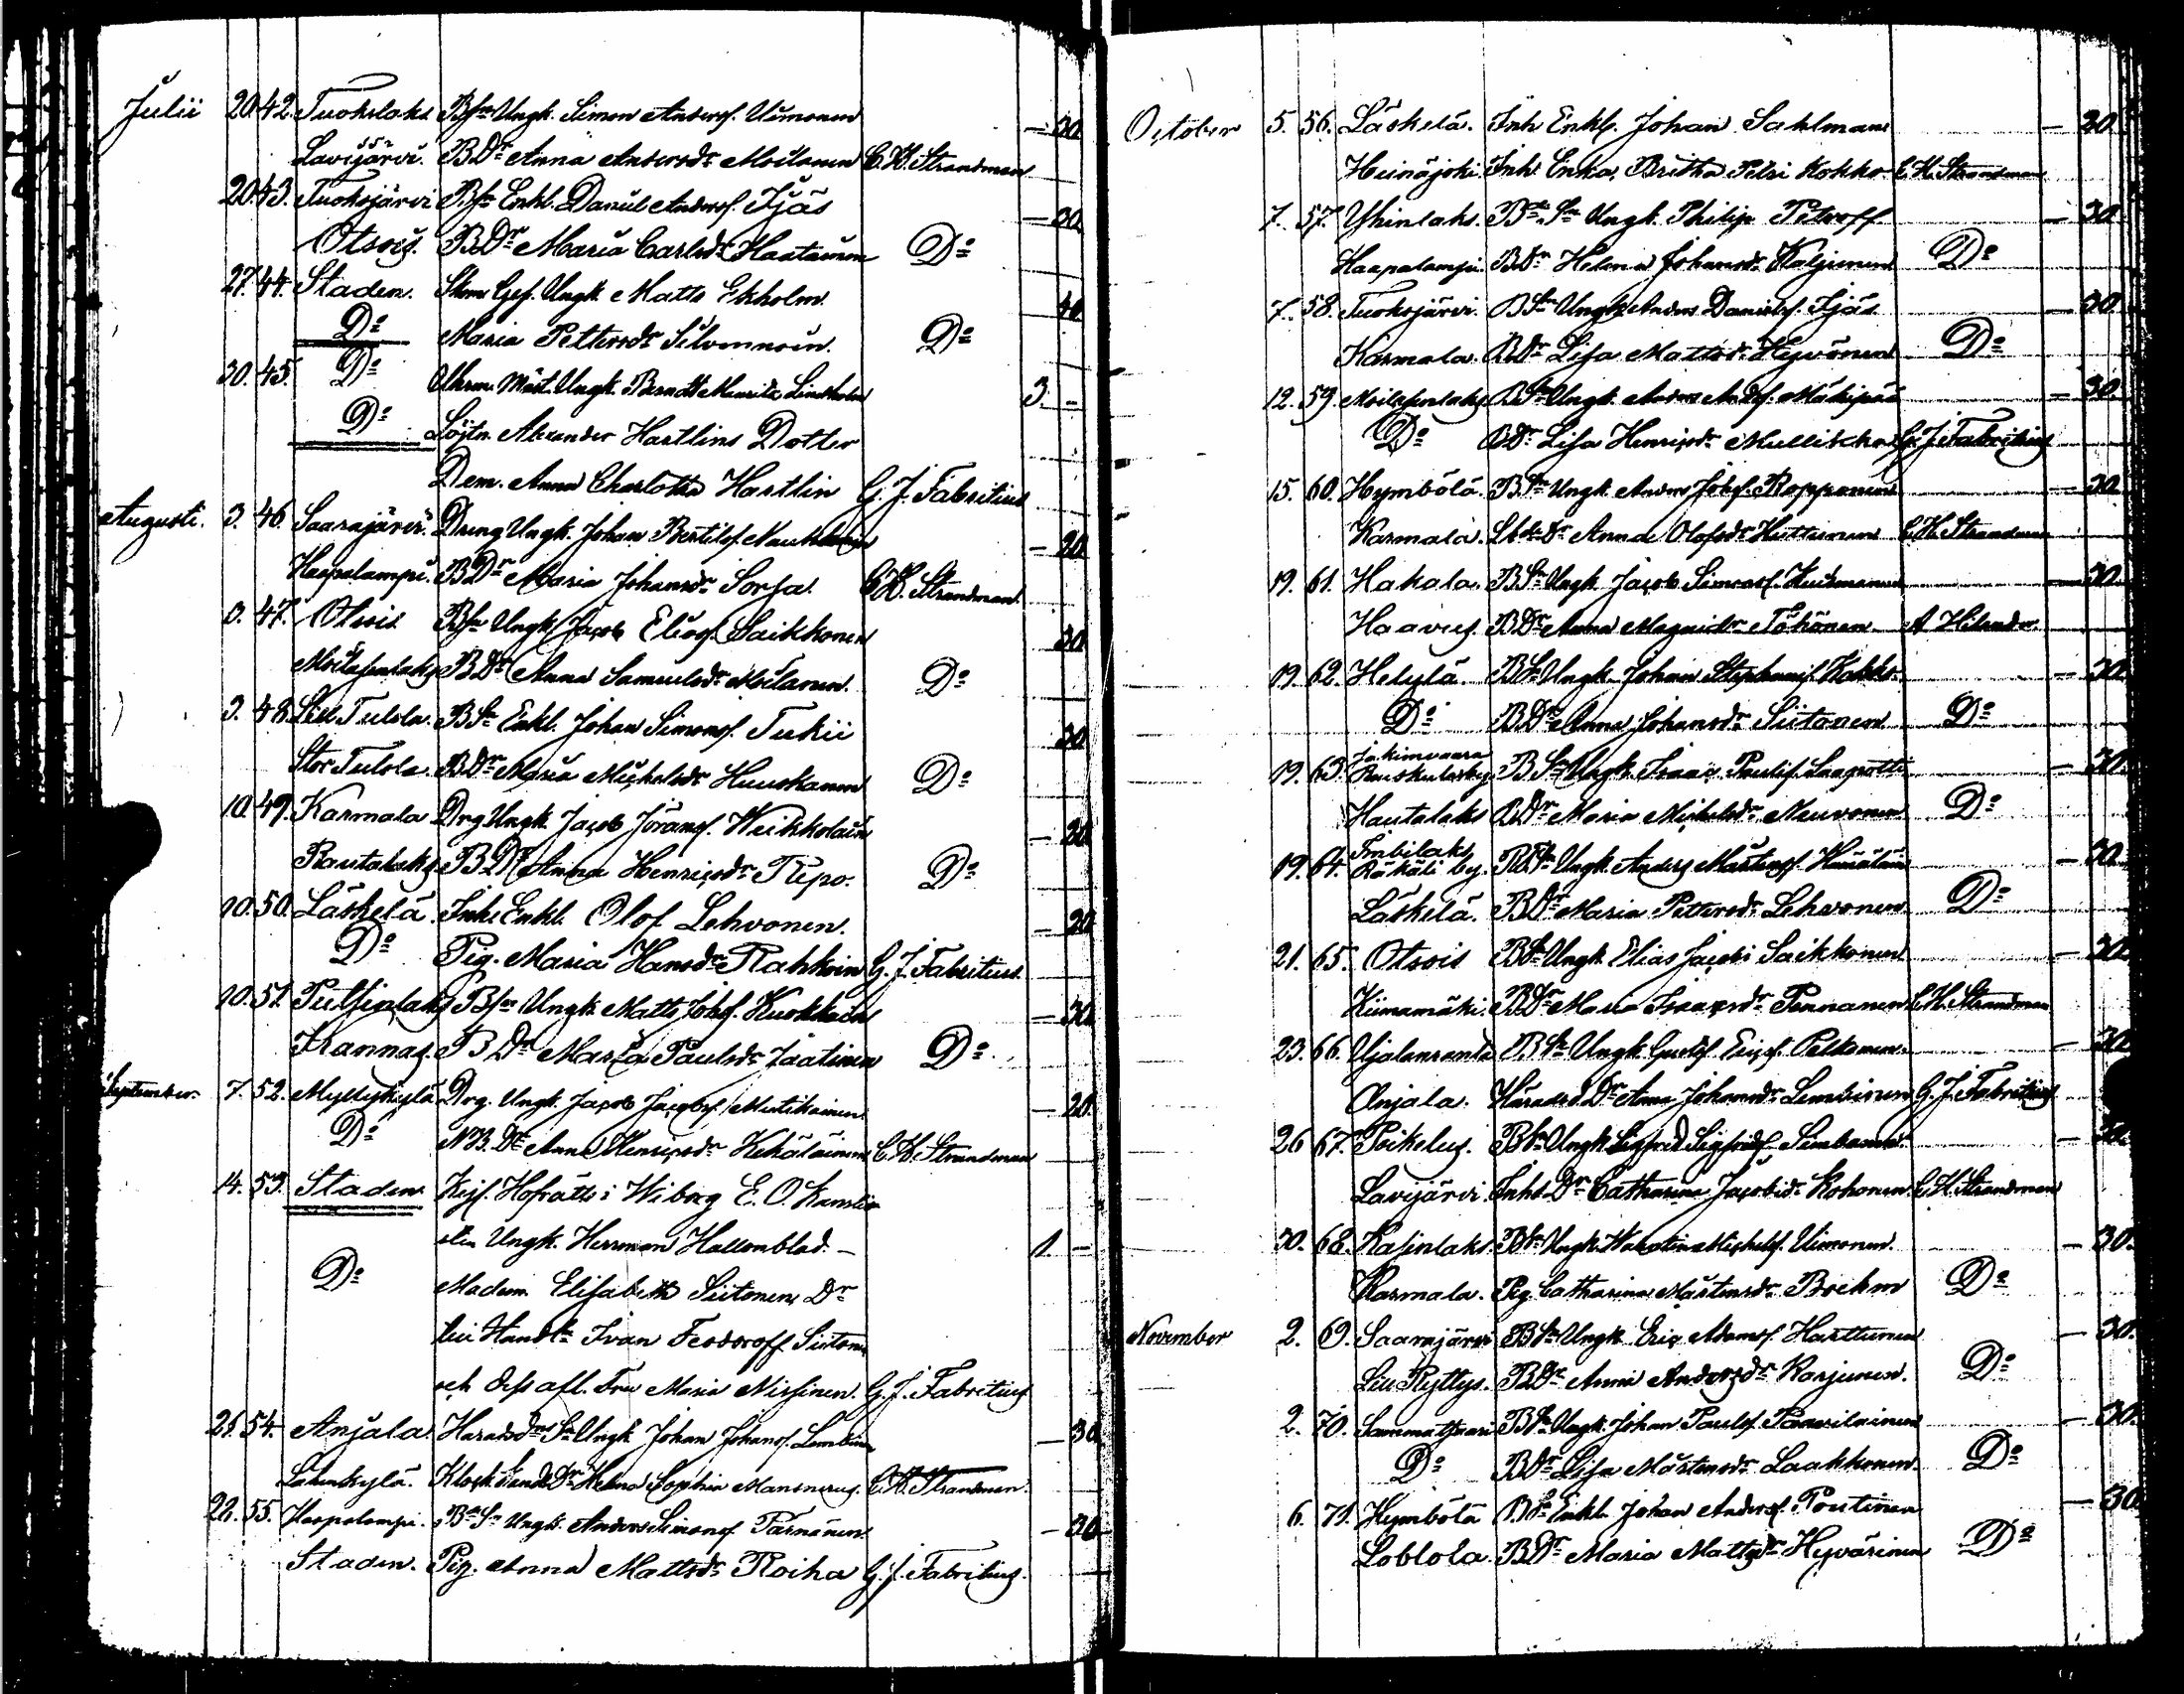 Julii 20. 42. Tuokslaks Bsn Ungk. Simon Andersf. Uimonen — 30
Lavijärvi. BDr Anna Andersdr Moilanen C. H. Strandman
20. 43. Tuoksjärvi Bsn Enkl. Daniel Andersf. Ijäs — 30
Otsois. BDr Maria Carlsdr Haatainen Do
27. 44. Staden. Skom. Ges. Ungk. Matts Ekholm. 40
Do Maria Pettersdr Silvennoin. Do
30. 45. Do Mäst. Ungk. Berndt Mauritz Lindholm 3. -
Do Löjtn. Alexander Hartlins Dotter
Dem. Anna Charlotta Hartlin G. J. Fabritius
Augusti. 3. 46. Saarajärvi. Dreng Ungk. Johan Bertilsf. — 20
Haapalampi. BDr Maria Johansdr Sorsa. C. H. Strandman
3. 47. Otsois Bsn Ungk. Jacob Eliasf. Saikkonen 30
BDr Anna Samuelsdr Moilanen. Do
3. 48. Lill Tulola. BSn Enkl. Johan Simonsf. Tukii 30
Stor Tulola. BDr Maria Michelsdr Huuskanen Do
10. 49. Karmala Drg Ungk. Jacob Göransf. Weikkolain — 30
Rautalaks BDr Anna Henricsdr Repo. Do
10. 50. Läskelä. Inh. Enkl. Olof Lehvonen. — 20
Do Pig. Maria Hansdr Rahkoin G. J. Fabritius
10. 51. Putsinlaks Bsn Ungk. Matts Johsf. Kuokkain — 30
Kannas. BDr Maria Paulsdr Jaatinen Do
September. 7. 52. Myllykylä Drg. Ungk. Jacob Jacobsf. Mutikainen — 20
Do NB. Dr Anna Henricsdr Kekäläinen C. H. Strandman
14. 53. Staden. Kejs. Hofrätts i Wiborg E. O. Kansli
sten Ungk. Herrman Hallonblad. — 1 -
Do Madem. Elisabeth Siitonen Dr
till Handl. Ivan Feodoroff Siitonen
och dess afl. Fru Maria Nissinen. G. J. Fabritius
21. 54. Anjala Haradsd. Sn Ungk. Johan Johansf. Lembinen — 30
Klock Dr Helena Sophia C. H. Strandman
28. 55. Haapalampi. Bn Sn Ungk. Anders Simonsf. Parnanen — 30
Staden. Pig. Anna Mattsdr Roiha G. J. Fabritius.
October 5. 56. Läskelä. Inh. Enkl. Johan Sahlman — 20.
Heinäjoki Inh. Enka. Britha Petri Kokko C. H. Strandman
7. 57. Yhinlaks. Bn. Sn Ungk. Philip Petroff — 30.
Haapalampi. BDr Helena Johansdr Kaljunen Do
7. 58. Tuoksjärvi. BSn Ungk. Anders Danielsf. Ijäs — 30.
Karmala. BDr Lisa Mattsdr Hyvönen Do
12. 59. BSn Ungk. Anders Andsf. Mäkipää — 30.
Do BDr Lisa Henricsdr G. J. Fabritius
15. 60. Hymbölä. BSn Ungk. Anders Johsf. Ropponen — 30
Karmala. Dr Anna Olofsdr Huttunen C. H. Strandman
19. 61. Hakala. BSn Ungk. Jacob Simonsf. — 30.
Haavus. BDr Anna Magnidr Töhönen A. Helander.
19. 62. Helylä. BSn Ungk. Johan Stephansf. Kokko — 30.
Do BDr Anna Johansdr Siitonen Do
19. 63. Jakimvaara
Ruskulaby. BSn Ungk. Isaac Paulsf. — 30.
Hautalaks BDr Maria Michelsdr Neuvonen Do
19. 64. Imbilaks
Räkäli by. BSn Ungk. Anders Mårtensf. — 30.
Läskelä. BDr Maria Pettersdr Lehvonen Do
21. 65. Otsois BSn Ungk. Elias Jacobi Saikkonen — 30.
Kiimamäki. BDr Maria Isaacsdr Pennanen C. H. Strandman
23. 66. Ojalanranta BSn Ungk. Gustof Ericsf. Pelkonen — 30
Anjala. Häradsd. Dr Anna Johansdr Lembinen G. J. Fabritius
26. 67. Poikelus. BSn Ungk. Sigfred Sigfridsf. — 30.
Lavijärvi. Inhs. Dr Catharina Jacobidr Kohonen C. H. Strandman
30. 68. Rasinlaks. BSn Ungk. Michelsf. Uimonen. — 30.
Karmala. Pig. Catharina Mårtensdr Boehm Do
November 2. 69. Saarajärvi BSn Ungk. Eric Adamsf. Harttunen — 30.
Lill Ryttys. BDr Anna Andersdr Karjunen. Do
2. 70. Sammatsaari BSn Ungk. Johan Paulsf. — 30.
Do BDr Lisa Mårtensdr Laakkonen. Do
6. 71. Hymbölä BSn Enkl. Johan Andersf. Poutinen — 30.
Loblola. BDr Maria Mattsdr Hyvärinen Do